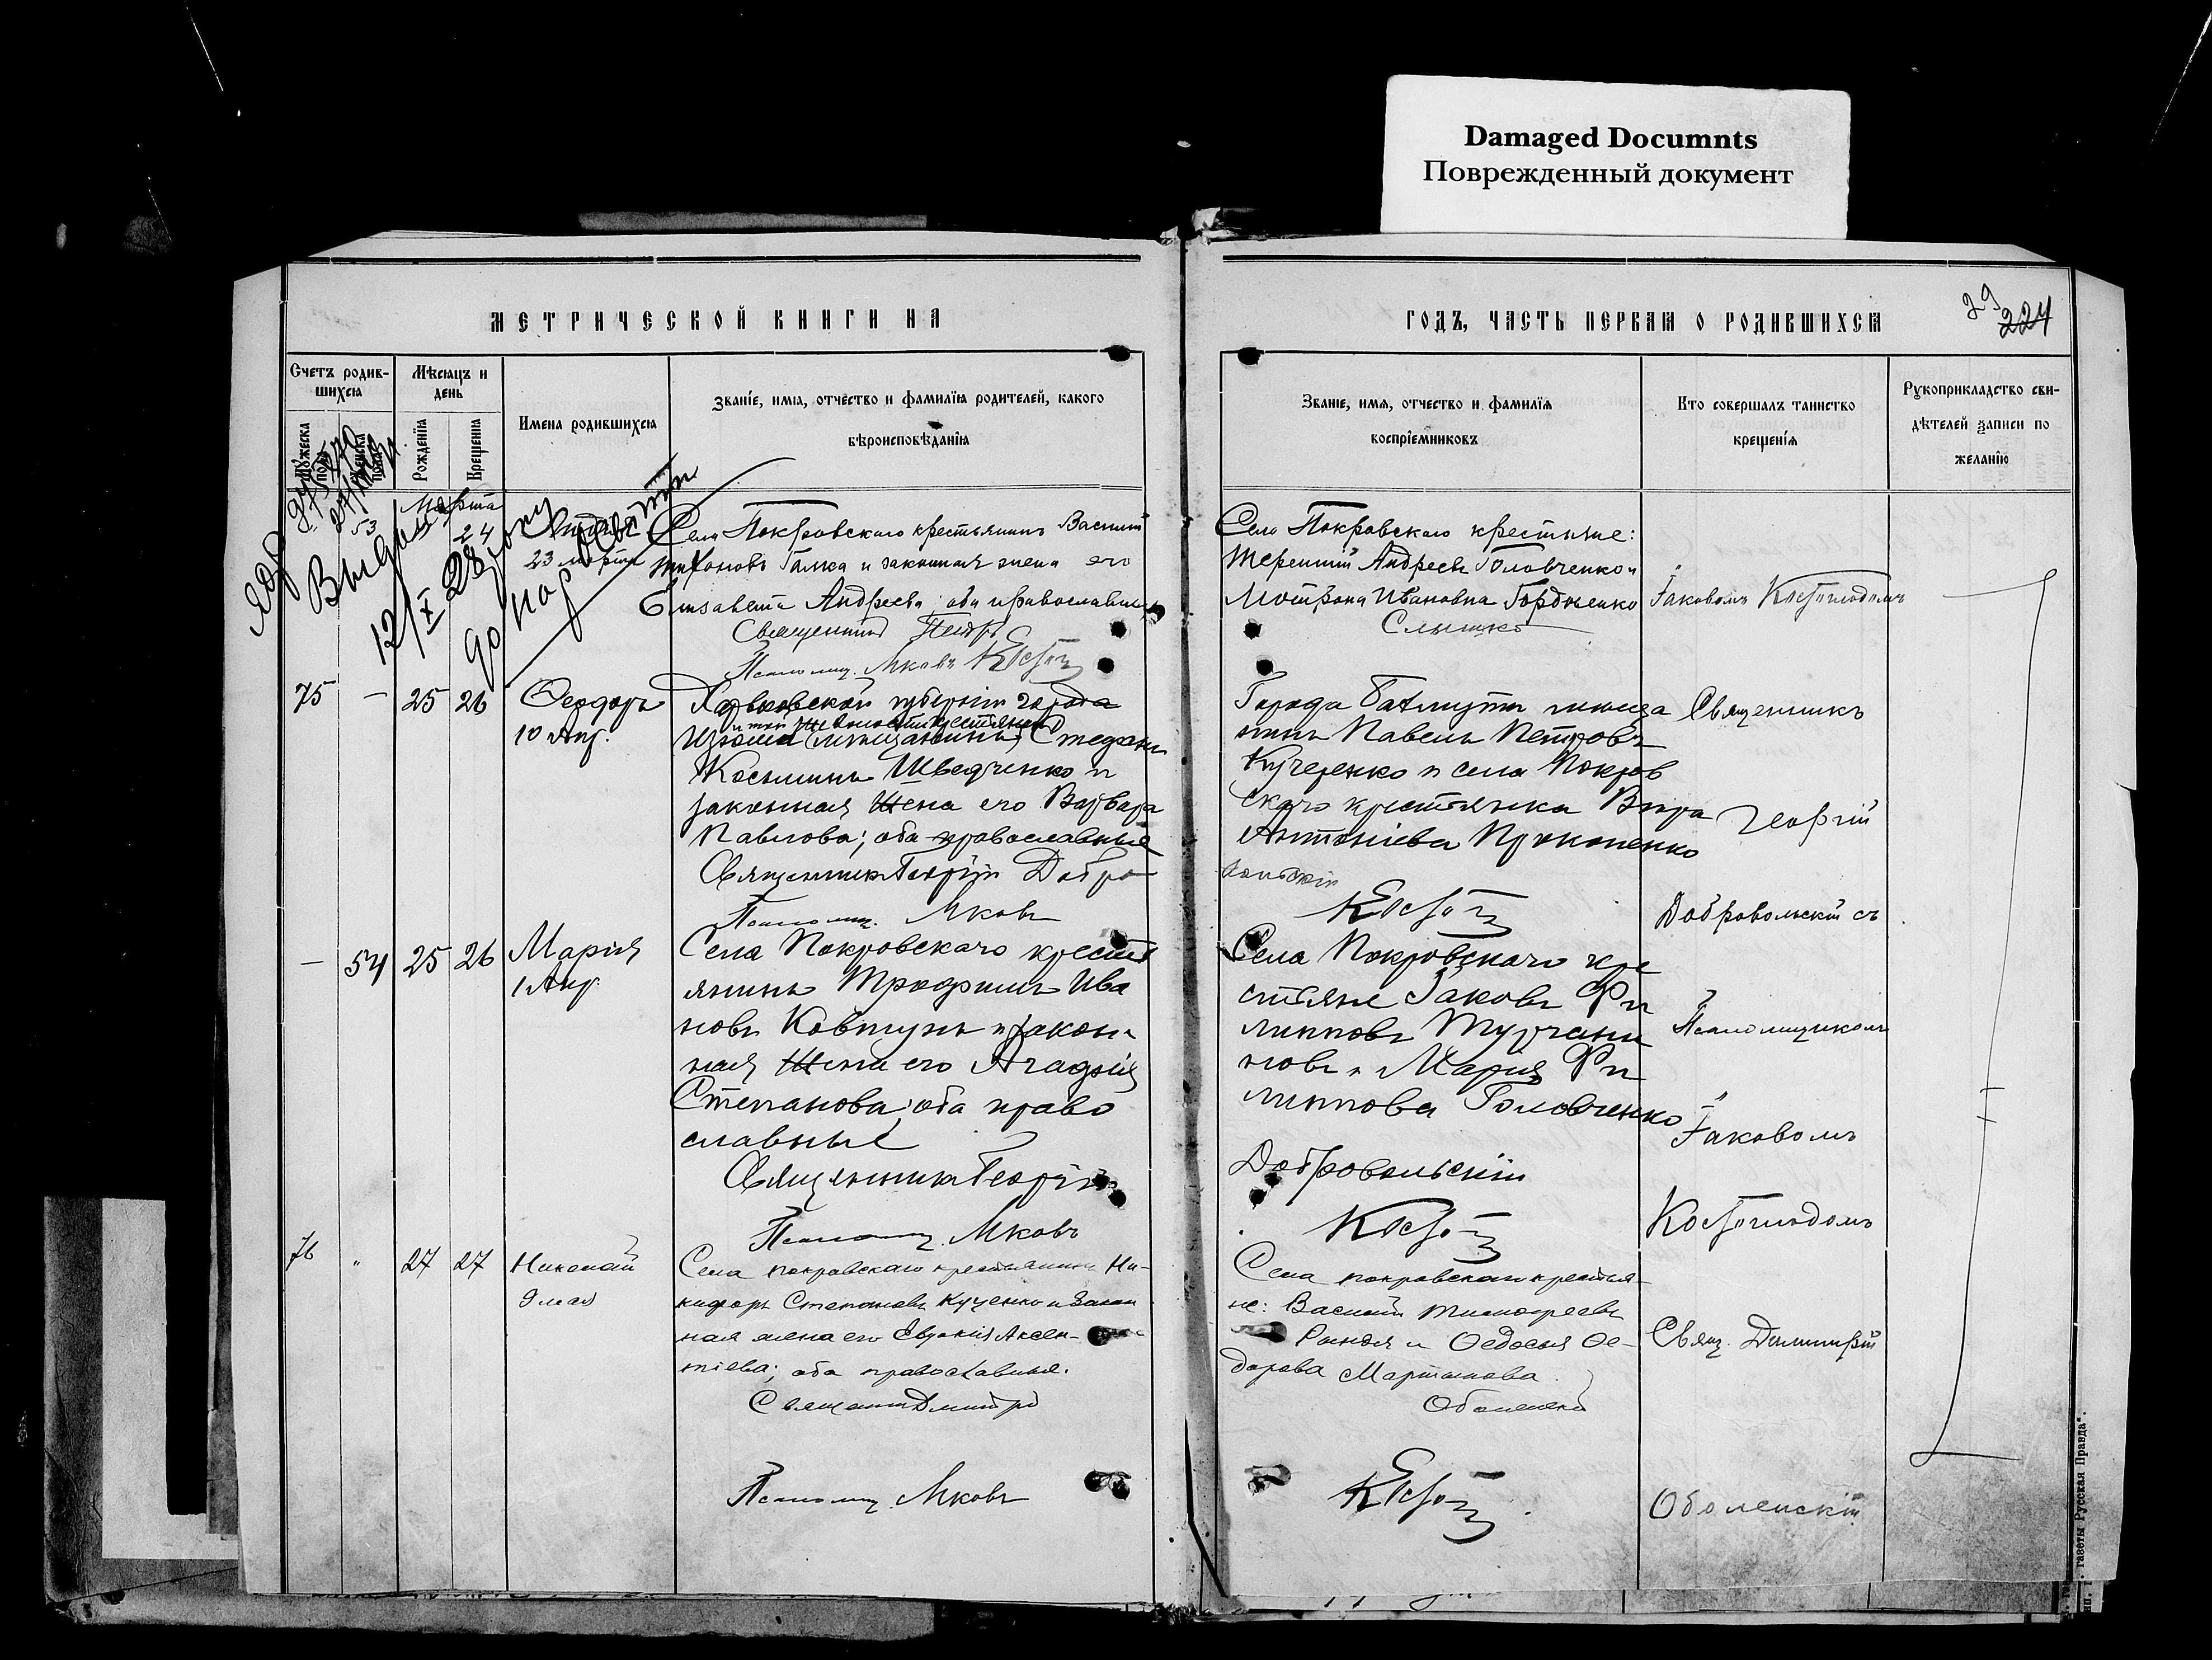 Damaged Documnts
Поврежденный документ
МЕТРИЧЕСКОЙ КНИГИ НА
ГОДЪ, ЧАСТЬ ПЕРВАЯ О РОДИВШИХСЯ
29
224
Счетъ родив-
шихся
Мѣсяцъ и
день
Мужеска пола
Женска пола
Рожденія
Крещенія
Имена родившихся
Званіе, имя, отчество и фамилія родителей, какого
вѣроисповѣданія
Званіе, имя, отчество и фамилія
воспріемниковъ
Кто совершалъ таинство
крещенія
Рукоприкладство сви-
дѣтелей записи по
желанію
Марта
53
24
23 марта
Села Покровскаго крестьянинъ Василій
Тихоновъ Галка и законная жена его
Елизавета Андреева; оба православные
Священникъ Петръ
Псаломщ. Яковъ
Села Покровскаго крестьяне:
Терентій Андреевъ Головченко и
Мотрона Ивановна Гордіенко
Слышко
Іаковомъ
Выдана
12/X 28
75 — 25 26 Ѳеодоръ
10 Апр.
Харьковской губерніи города
Изюма (мѣщанинъ) Стефанъ
Косьминъ Шведченко и
законная жена его Варвара
Павлова; оба православные
Священникъ Георгій Добро
вольскій
Псаломщ. Яковъ
Города Бахмута мѣща
нинъ Павелъ Петровъ
Кучеренко и села Покров
скаго крестьянка Вѣра
Антоніева Прокопенко
Священникъ
Георгій
Добровольскій съ
— 54 25 26 Марія
1 Апр.
Села Покровскаго крестья
янинъ Трофимъ Ива
новъ Ковтунъ и закон-
ная жена его Агафія
Степанова; оба право
славные
Священникъ Георгій
Добровольскій
Псаломщ. Яковъ
Села Покровскаго кре
стьяне Іаковъ Фи
липповъ Турчани
новъ и Марія Фи
липпова Головченко
Псаломщикомъ
Іаковомъ
76 " 27 27 Николай
9 мая
Села покровскаго крестьянинъ Ни-
кифоръ Степановъ Куценко и закон
ная жена его Евдокія Аксен-
тіева; оба православные.
Священникъ Димитрій
Оболенскій
Псаломщ. Яковъ
Села покровскаго крестья-
не: Василій Тимофеевъ
и Ѳедосья Ѳе-
дорова Мартынова.
Свящ. Димитрій
Оболенскій
газеты Русская Правда".